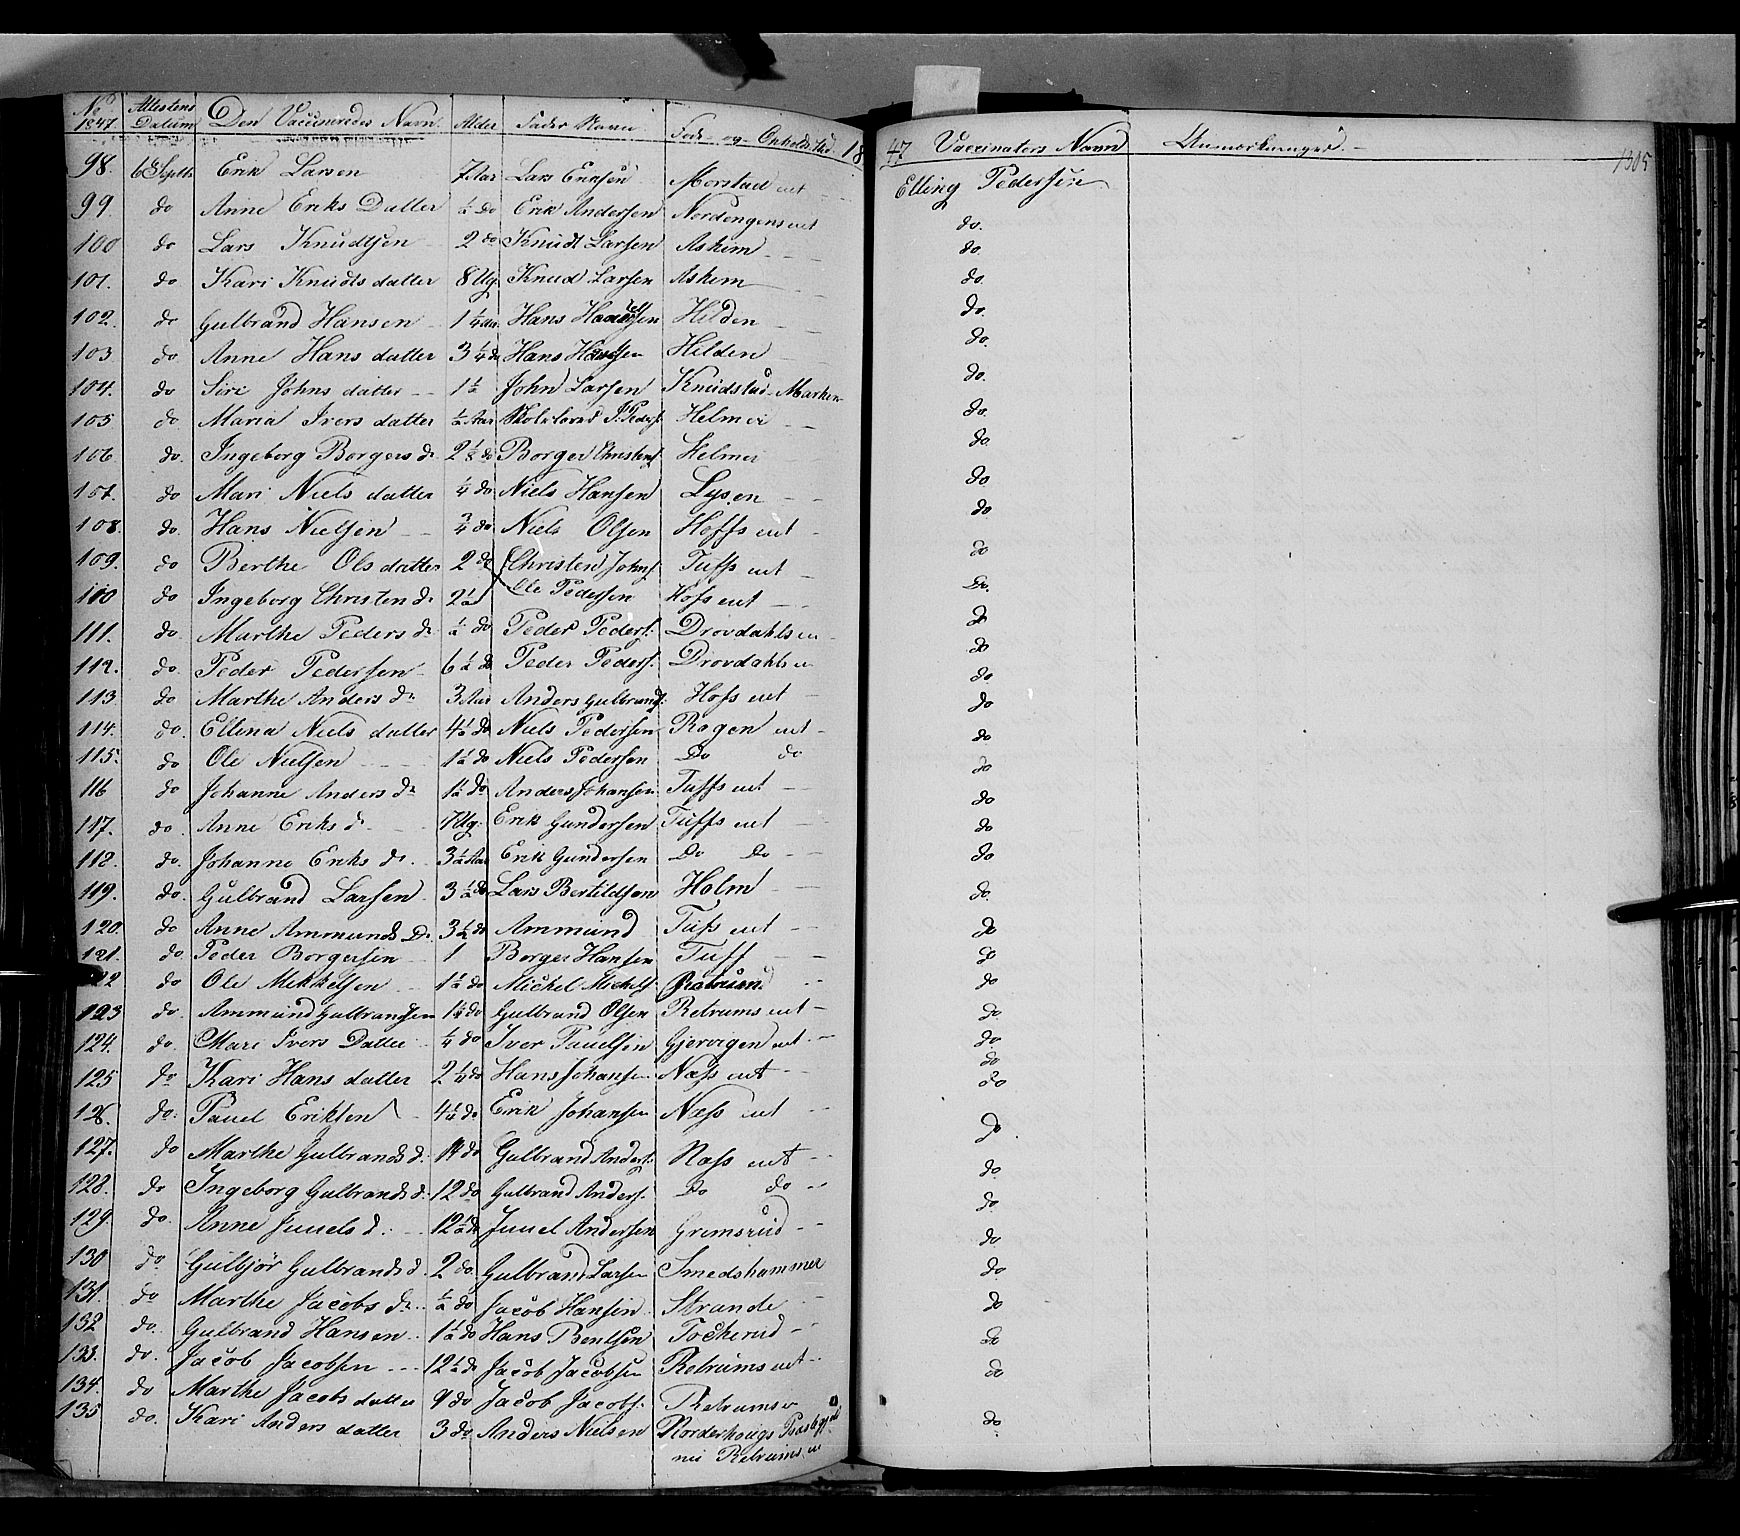 No 1847 Attestens Datum Den Vaccineredes Navn Alder Faders Navn Føde- og Opholdsted 18
98. 6te Septb Erik Larsen 7 Aar Lars Eriksen Morstad eiet
99 do Anne Eriks Datter ½ do Erik Andersen Nordengens eiet
100 do Lars Knudtsen 2 do Knudt Larsen Askim
101. do Kari Knudts datter 8 Ug. Knud Larsen Askim
102. do Gulbrand Hansen 1¼ Aar Hans Hansen Hilden
103 do Anne Hans datter 3¼ do Hans Hansen Hilden
104. do Siri Johns datter 1½ John Larsen Knudstad-Marken
105 do Maria Ivers datter ½ Aar P. Peders. Helmei
106 do. Ingeborg Borgers dr. 2 do Borger Christens. Helmei
107. do Mari Niels datter ¼ do Niels Hansen Lysen
108. do. Hans Nielsen ¾ do Niels Olsen Hoffs eiet
109. do Berthe Ols datter 2 do Christen Johns. Tuffs eiet
110 do Ingeborg Christen dr. 2½ Ole Pedersen Hofs eiet
111. do. Marthe Peders dr ½ do Peder Peders. Drovdahls ei
112. do. Peder Pedersen 6½ do Peder Peders. Drovdahls e
113 do Marthe Anders dr 3 Aar Anders Gulbrands. Hofs eiet
114. do. Ellena Niels datter 4½ do Niels Pedersen Ragen eiet
115. do Ole Nielsen 1½ do Niels Pedersen Do do
116 do Johanne Anders dr 1½ do Anders Johansen Tuffs eiet
117. do. Anne Eriks d. 7 Ug. Erik Gundersen Tuffs eiet
118. do. Johanne Eriks dr. 3½ Aar Erik Gundersen Do Do
119. do. Gulbrand Larsen 3½ do Lars Bertildsen Holm
120. do Anne Ammunds D. 3½ do Ammund Tufs eiet
121. do Peder Borgersen 1 Borger Hansen Tuff
122 do Ole Mikkelsen 1½ do Mickel Mickels. Retrum
123 do. Ammund Gulbrandsen 1¼ do Gulbrand Olsen Retrums eiet
124. do. Mari Ivers Datter ¼ do Iver Paulsen Gjervigen eiet
125 do Kari Hans datter 2¼ do Hans Johansen Næss eiet
126. do. Pauel Eriksen 4¼ do Erik Johansen Næss eiet
127. do Marthe Gulbrands d. 14 do Gulbrand Anders. Næss eiet
128. do Ingeborg Gulbrands d. 12 do Gulbrand Anders. Do do
129. do. Anne Juuels d. 12½ do Juuel Andersen Gremsrud
130 do. Gulbjør Gulbrands d. 2 do. Gulbrand Larsen Smedshammer
131. do Marthe Jacobs dr. ½ do Jacob Hansen Strande
132 do. Gulbrand Hansen 1½ do Hans Bentsen Tockerud
133. do. Jacob Jacobsen 12½ do Jacob Jacobsen Retrums eiet
134. do Marthe Jacobs datter 9 do Jacob Jacobs. Retrums e
135 do. Kari Anders datter 3 do Anders Nielsen Norderhougs
Retrums ei
47 Vaccinatørs Navn Anmærkninger 1305
Elling Pedersen
do.
do.
do.
do.
do.
do.
do.
do.
do
do.
do
do.
do
do.
do.
do
do.
do
do
do
do
do.
do
do
do
do.
do.
do
do
do.
do.
do.
do.
do.
do
do
do
do.